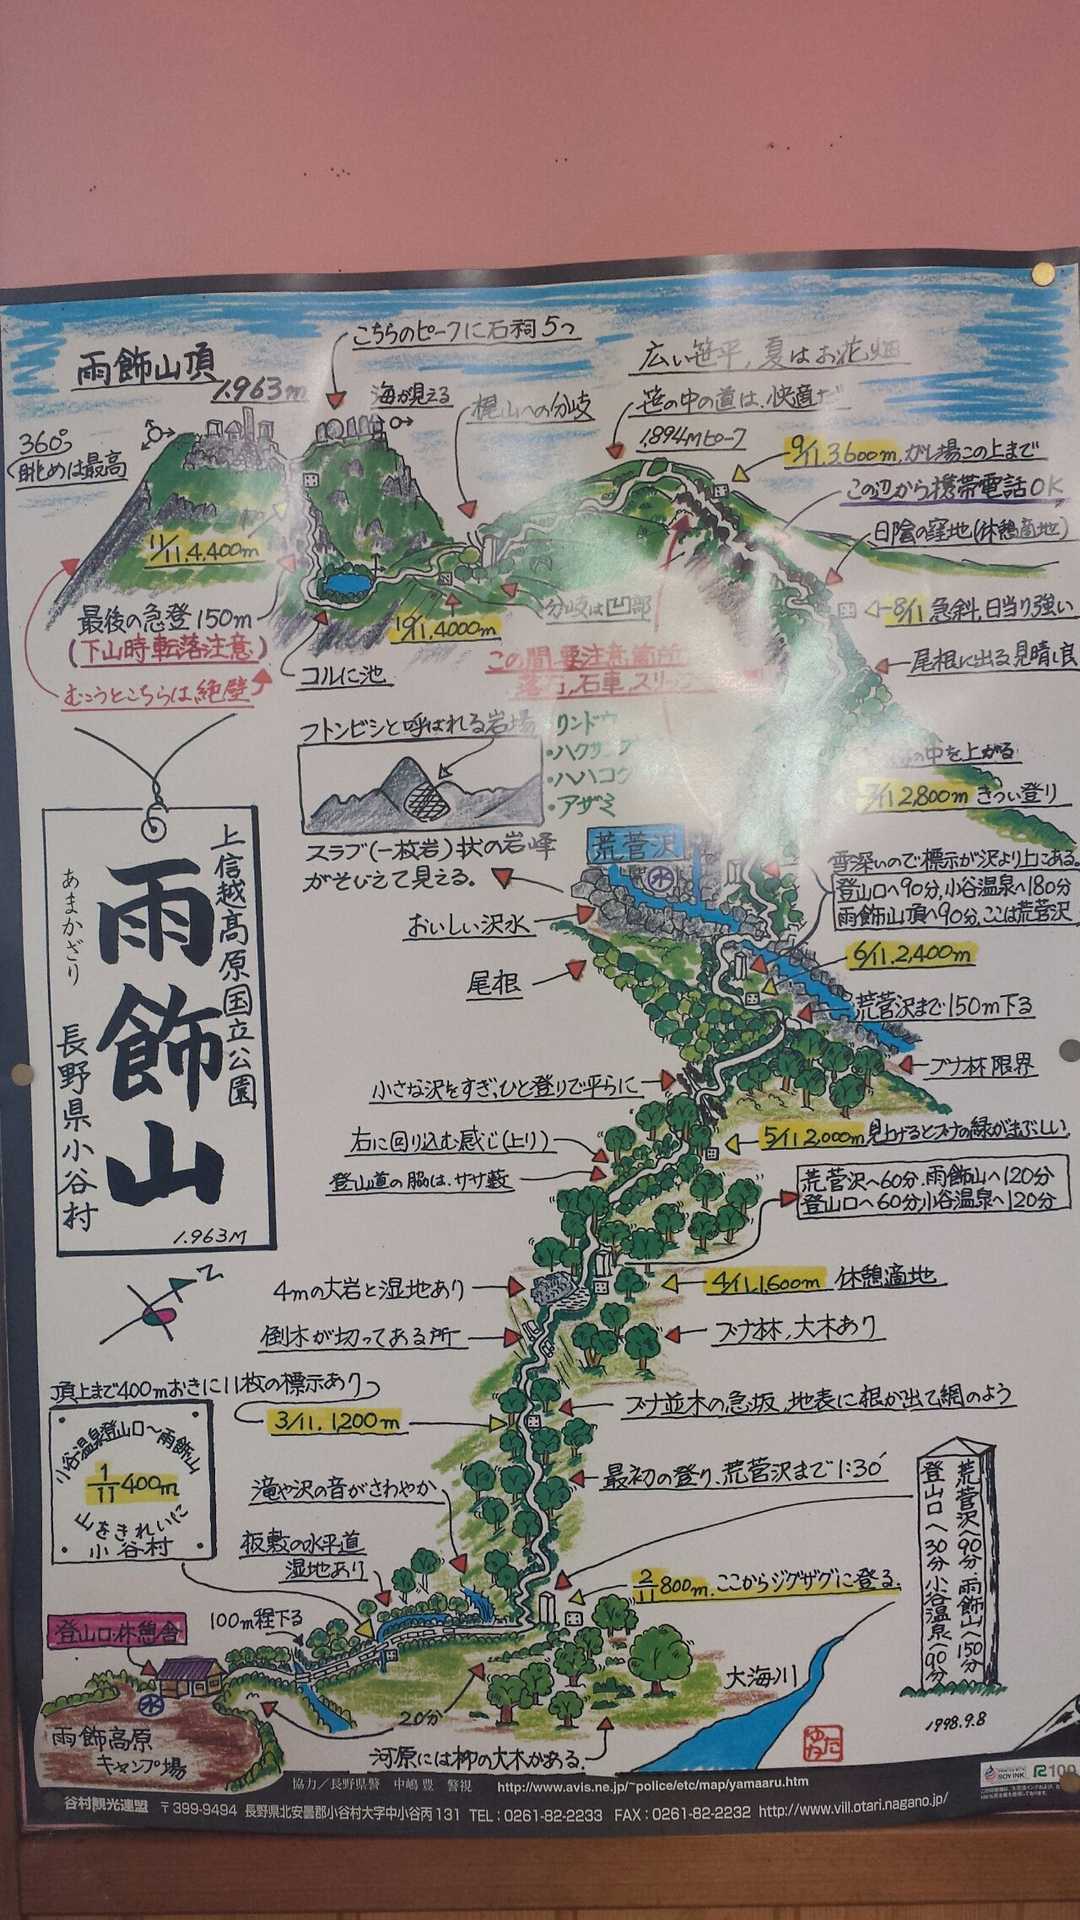 こちらのピークに石祠5つ
雨飾山頂
1.963m
海が見える
梶山への分岐
広い笹平、夏はお花畑
笹の中の道は、快適だ
1.894Mピーク
360°
眺めは最高
9/11.3.600m.ガレ場この上まで
この辺から携帯電話OK
日陰の窪地(休憩適地)
11/11.4.400m
最後の急登150m
(下山時転落注意)
むこうとこちらは絶壁
コルに池
10/11.4000m
分岐は凹部
8/11 急斜、日当り強い
尾根に出る見晴し良
この間、要注意箇所
落石,石車,スリップ
フトンビシと呼ばれる岩場
リンドウ
・ハクサンフ
・ハハコグ
・アザミ
の中を上がる
7/11 2,800m きつい登り
スラブ(一枚岩)状の岩峰
がそびえて見える。
荒菅沢
水
雪深いので標示が沢より上にある。
登山口へ90分,小谷温泉へ180分
雨飾山頂へ90分,ここは荒菅沢
おいしい沢水
6/11.2,400m
尾根
荒菅沢まで150m下る
ブナ林限界
小さな沢をすぎ、ひと登りで平らに
右に回り込む感じ(上り)
5/11 2,000m 見上げるとブナの緑がまぶしい
登山道の脇は、ササ藪
荒菅沢へ60分.雨飾山へ120分
登山口へ60分,小谷温泉へ120分
上信越高原国立公園
雨飾山
あまかざり
長野県小谷村
1.963M
N
4mの大岩と湿地あり
4/11,1,600m 休憩適地
倒木が切ってある所
ブナ林、大木あり
頂上まで400mおきに11枚の標示あり
3/11.1200m
ブナ並木の急坂、地表に根が出て網のよう
小谷温泉登山口〜雨飾山
1/11 400m
山をきれいに
小谷村
滝や沢の音がさわやか
最初の登り、荒菅沢まで1:30′
板敷の水平道
湿地あり
2/11 800m.ここからジグザグに登る.
荒菅沢へ90分 雨飾山へ150分
登山口へ30分 小谷温泉へ90分
登山口・休憩舎
100m程下る
水
雨飾高原
キャンプ場
20分
河原には柳の大木がある.
大海川
1998.9.8
協力/長野県警 中嶋 豊 警視 http://www.avis.ne.jp/~police/etc/map/yamaaru.htm
谷村観光連盟 〒399-9494 長野県北安曇郡小谷村大字中小谷丙131 TEL:0261-82-2233 FAX:0261-82-2232 http://www.vill.otari.nagano.jp/
SOY INK
R100